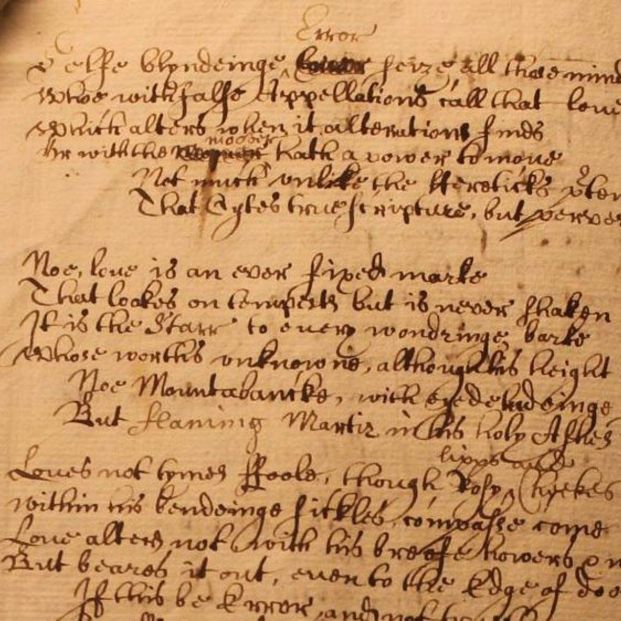 Error
Selfe blyndeinge seize all those mind
Who with falsе Appellations call that love
Which alters when it alterations finds
moover
Or with the hath a power to move
Not much unlike the Heretickes pten
That Cytes true scripture, but perver
Noe, love is an ever fixed marke
That lookes on tempests but is never shaken
It is the Starr to every wondringe barke
Whose worths unknowne, although his height
Noe Mountabancke, with eyedeludeinge
But flaming Martir in his holy Ashes
lipps and
Loves not tymes Foole, though Rosy Cheekes
within his bendeinge sickles, compasse come
Love alters not with his breefe howers
But beares it out, even to the Edge of doo
If this be Error, and not